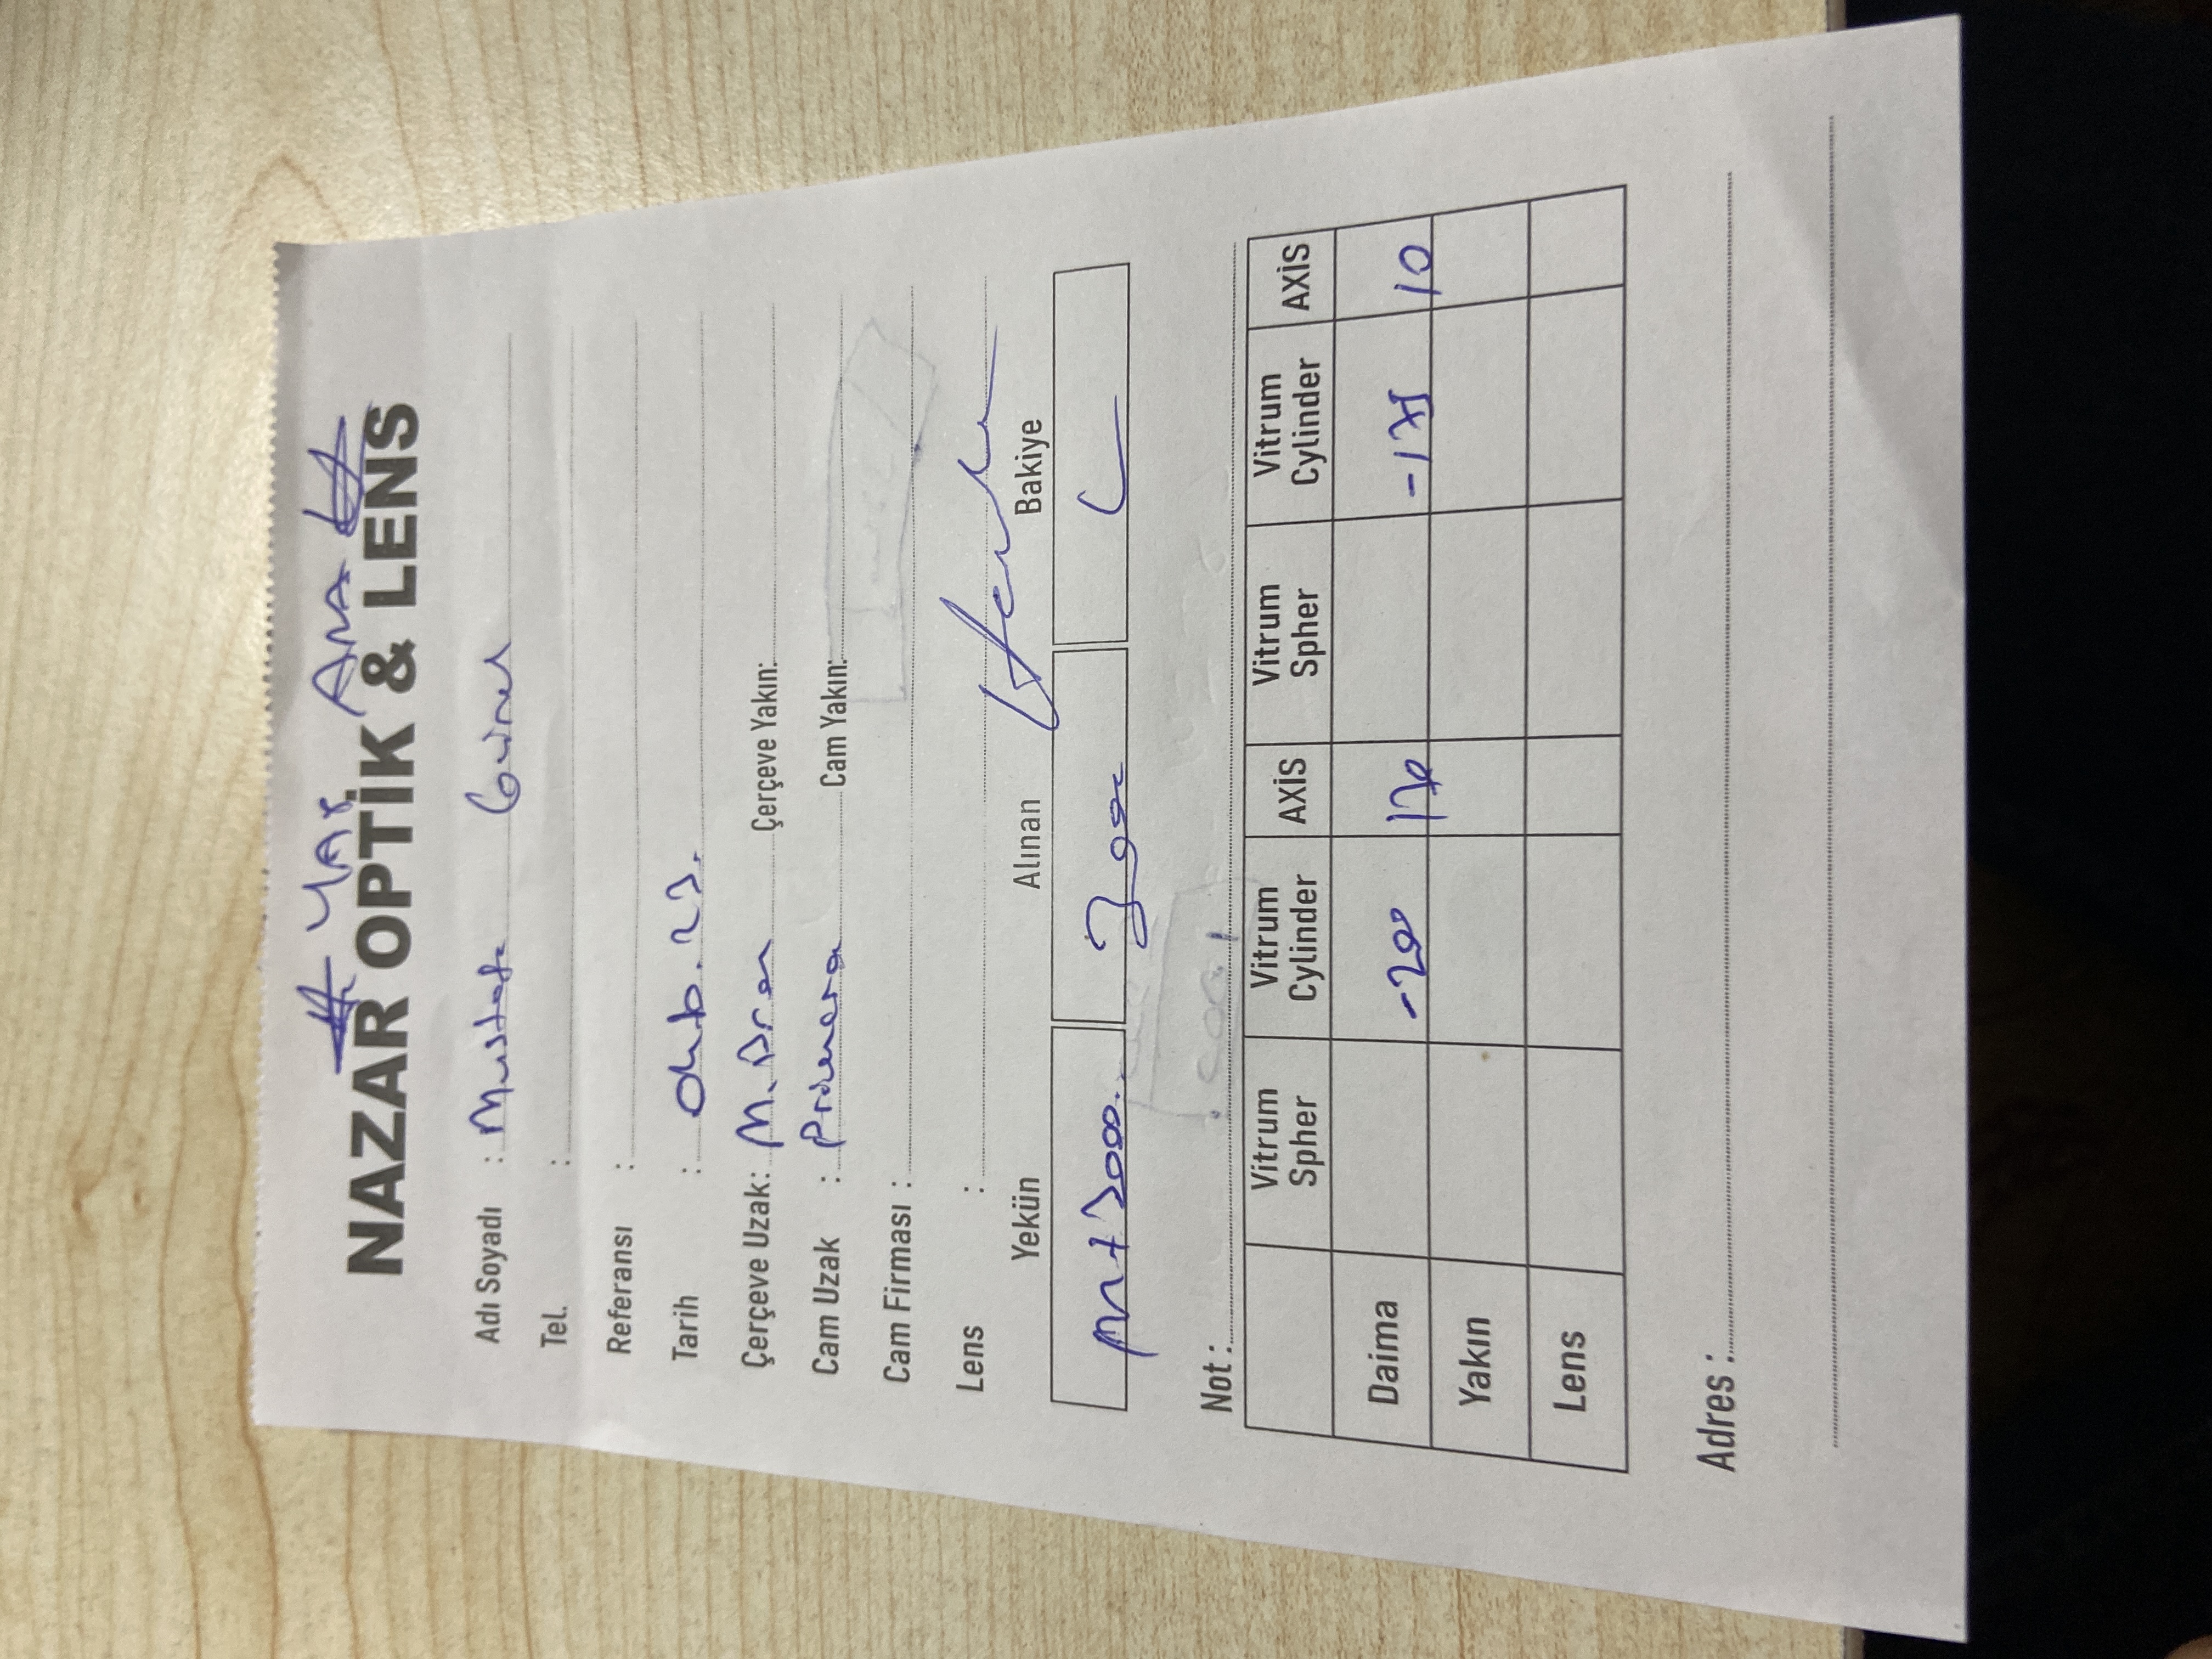 YAP ARA
NAZAR OPTİK & LENS
Adı Soyadı : Mustafa Günel
Tel. :
Referansı :
Tarih : 23.
Çerçeve Uzak: M. Çerçeve Yakın:
Cam Uzak : Primera Cam Yakın:
Cam Firması :
Lens :
Yekün Alınan Bakiye
+ 3000. 3000
Not :
Vitrum Spher Vitrum Cylinder AXİS Vitrum Spher Vitrum Cylinder AXİS
Daima -200 170 -175 10
Yakın
Lens
Adres :